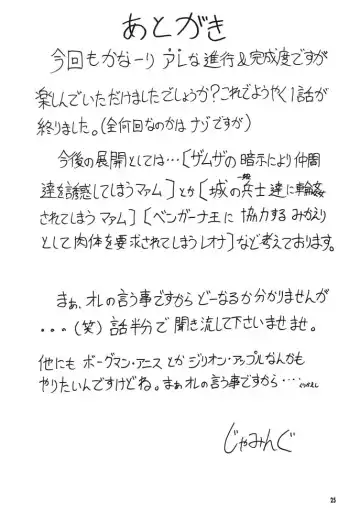 あとがき
今回もかなーり アレな進行&完成度ですが
楽しんでいただけましたでしょうか?これでようやく1話が
終りました。(全何回なのかは ナゾですが)
今後の展開としては…〔ザムザの暗示により仲間
達を誘惑してしまうマァム〕とか〔城の一般兵士達に輪姦
されてしまうマァム〕〔ベンガーナ王に 協力する みかえり
として肉体を要求されてしまうレオナ〕など考えております。
まぁ、オレの言う事ですから どーなるか分かりませんが
・・・(笑) 話半分で 聞き流して下さいませませ。
他にも ボーグマン・アニス とか ジリオン・アップルなんかも
やりたいんですけどね。まぁオレの言う事ですから・・・
じゃみんぐ
25